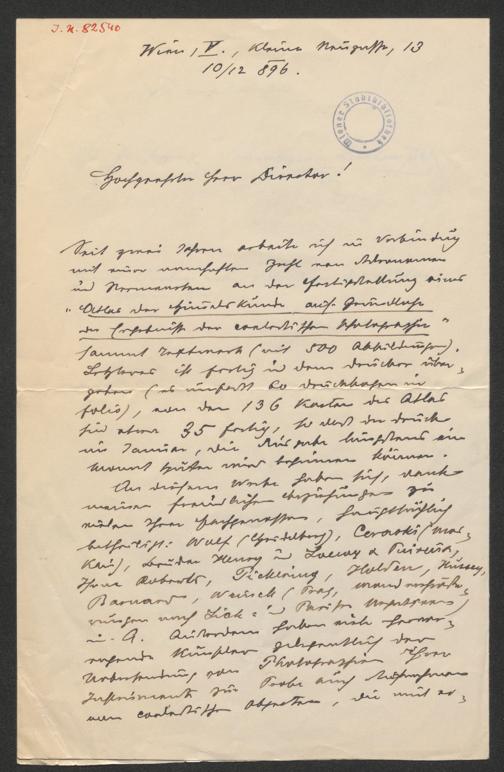 J. N. 82540
Wien, V., kleine Neugasse, 13
10/12 896.
Wiener Stadtbibliothek
Hochgeehrter Herr Director!
Seit zwei Jahren arbeite ich in Verbindung
mit einer namhaften Zahl von Astronomen
und an der Fertigstellung eines
"Atlas der Himmelskunde auf Grundlage
der Ergebnisse der coelestischen Photographie"
sammt Textwerk (mit 500 Abbildungen).
Letzteres ist fertig u dem Drucker über-
geben (es umfasst 20 Druckbogen in
folio), von den 136 Karten des Atlas
sind etwa 35 fertig, so dass der Druck
im Januar, die Ausgabe längstens ein
Monat später wird beginnen können.
An diesem Werke haben sich, dank
meinen freundlichen Beziehungen zu
vielen Ihrer Fachgenossen, hauptsächlich
betheiligt: Wolf (Heidelberg), Ceraski (Mos-
kau), Brüder Henry u Loewy & Puiseux,
Roberts, Pickering, Holden, Hussey,
Barnard, Weinek (Prag,
nach Lick- u Pariser
u. A. Ausserdem haben mir hervor-
ragende Künstler gelegentlich der
von Photographien ihrer
Instrumente zur Probe auch Aufnahmen
von coelestischen Objecten, die mit er-